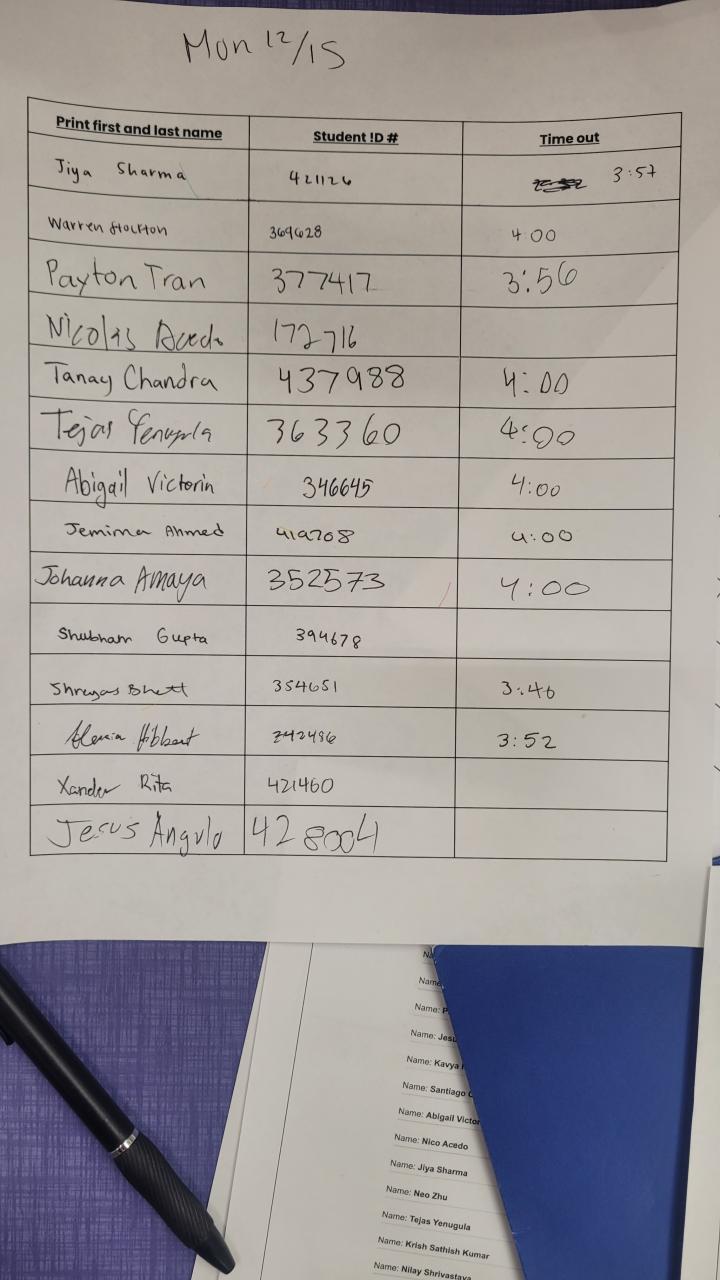 Mon 12/15
Print first and last name Student !D # Time out
Jiya Sharma 421126 3:57
Warren Stockton 369628 4:00
Payton Tran 377417 3:56
Nicolas Acedo 172716
Tanay Chandra 437988 4:00
Tejas Yenugula 363360 4:00
Abigail Victorin 346645 4:00
Jemima Ahmed 419708 4:00
Johanna Amaya 352573 4:00
Shubham Gupta 394678
Shreyas Bhatt 354651 3:46
Hibbert 342486 3:52
Xander Rita 421460
Jesus Angulo 428004
Name:
Name:
Name: Jesu
Name: Kavya
Name: Santiago
Name: Abigail Victor
Name: Nico Acedo
Name: Jiya Sharma
Name: Neo Zhu
Name: Tejas Yenugula
Name: Krish Sathish Kumar
Name: Nilay Shrivastava